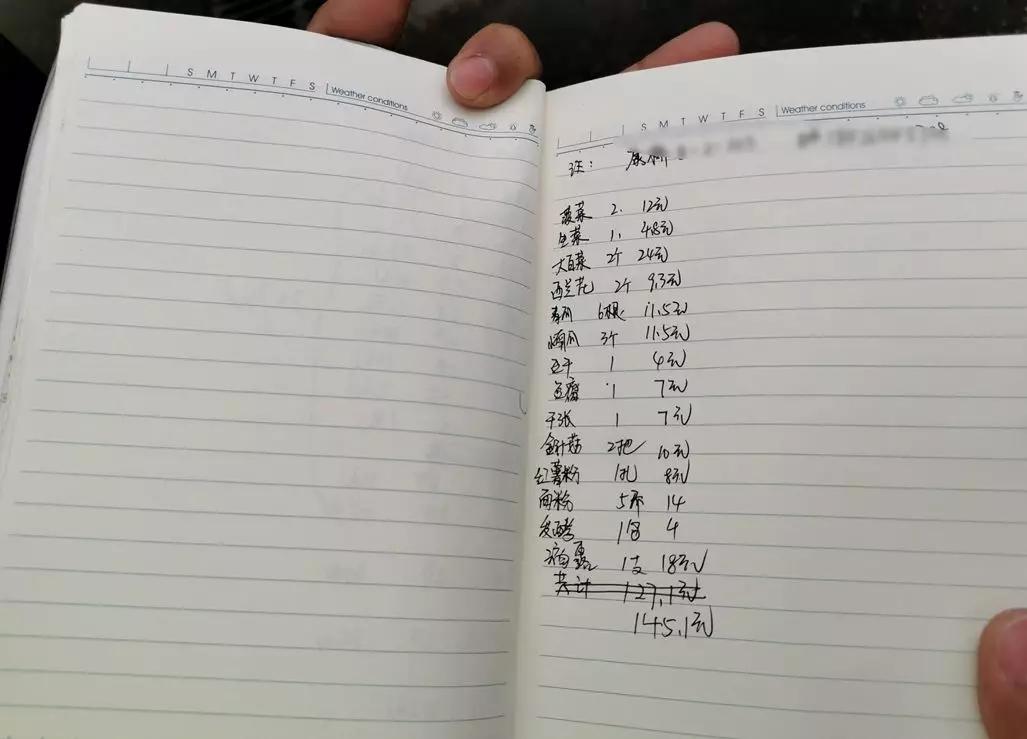 S M T W T F S Weather conditions
S M T W T F S Weather conditions
菠菜 2. 12元
生菜 1. 4.8元
大白菜 2个 24元
西兰花 2个 9.3元
6根 11.5元
3个 11.5元
豆干 1 4元
豆腐 1 7元
千张 1 7元
金针菇 2把 10元
红薯粉 1扎 8元
面粉 5斤 14
发酵 1包 4
1支 18元
共计 127.1元
145.1元